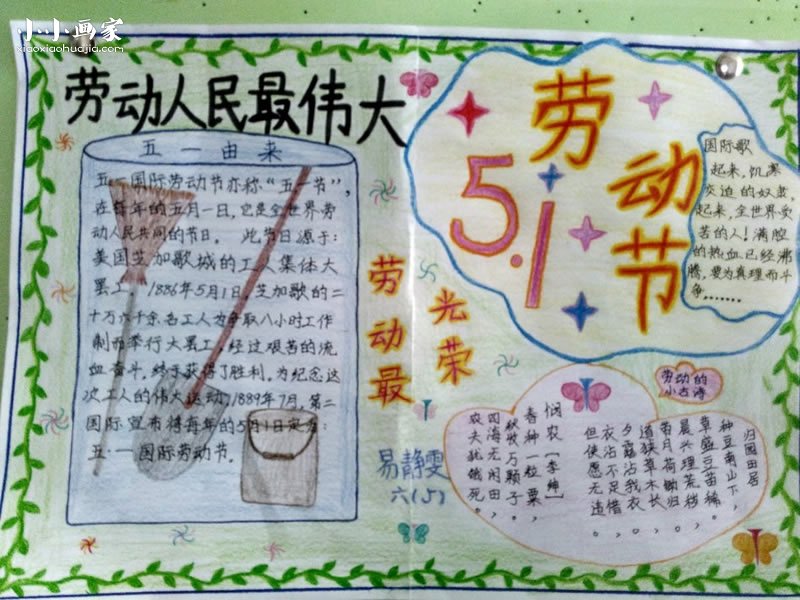 小小画家
xiaoxiaohuajia.com
劳动人民最伟大
五一由来
五一国际劳动节亦称“五一节”，
在每年的五月一日，它是全世界劳
动人民共同的节日。此节日源于：
美国芝加哥城的工人集体大
罢工，1886年5月1日，芝加歌的二
十万六千余名工人为争取八小时工作
制而举行大罢工，经过艰苦的流
血奋斗，终于获得了胜利。为纪念这
次工人的伟大运动，1889年7月，第二
国际宣布将每年的5月1日定为：
五·一国际劳动节。
劳动最
光荣
易静雯
六(5)
劳动节
5.1
国际歌
起来，饥寒
交迫的奴隶，
起来，全世界受
苦的人！满腔
的热血已经沸
腾，要为真理而斗
争，......
劳动的
小古诗
归园田居
种豆南山下，
草盛豆苗稀。
晨兴理荒
月荷锄归。
道狭草木长，
夕露沾我衣。
衣沾不足惜，
但使愿无违。
悯农【李绅】
春种一粒粟，
秋收万颗子。
四海无闲田，
农夫犹饿死。